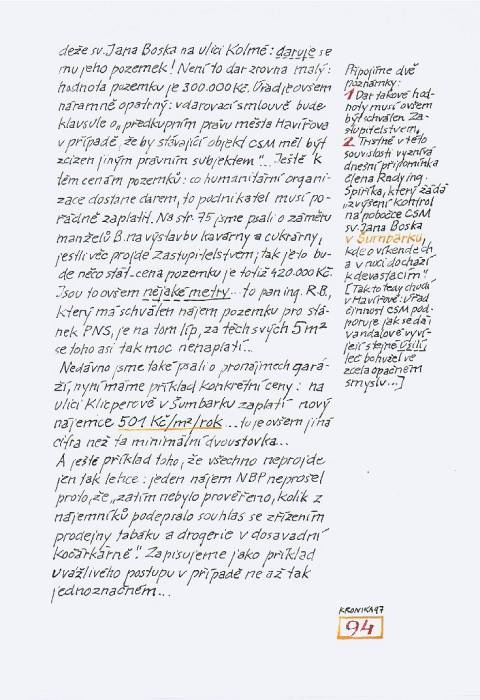 deže sv. Jana Boska na ulici Kolmé: daruje se
mu jeho pozemek! Není to dar zrovna malý:
hodnota pozemku je 300.000 Kč. Úřad je ovšem
náramně opatrný: v darovací smlouvě bude
klausule o „předkupním právu města Havířova
v případě, že by stávající objekt CSM měl být
zcizen jiným právním subjektem“... Ještě k
těm cenám pozemků: co humanitární organi-
zace dostane darem, to podnikatel musí po-
řádně zaplatit. Na str. 75 jsme psali o záměru
manželů B. na výstavbu kavárny a cukrárny,
jestli věc projde Zastupitelstvem, tak je to bu-
de něco stát - cena pozemku je totiž 420.000 Kč.
Jsou to ovšem nějaké metry... to pan ing. R.B.,
který má schválen nájem pozemku pro stá-
nek PNS, je na tom líp, za těch svých 5m²
se toho asi tak moc nenaplatí...
Nedávno jsme také psali o pronájmech gará-
ží, nyní máme příklad konkrétní ceny: na
ulici Klicperově v Šumbarku zaplatí nový
nájemce 501 Kč/m²/rok ... to je ovšem jiná
cifra než ta minimální dvoustovka...
A ještě příklad toho, že všechno neprojde
jen tak lehce: jeden nájem NBP neprošel
proto, že „zatím nebylo prověřeno, kolik z
nájemníků podepsalo souhlas se zřízením
prodejny tabáku a drogerie v dosavadní
kočárkárně“. Zapisujeme jako příklad
uvážlivého postupu v případě ne až tak
jednoznačném...
Připojíme dvě
poznámky:
1 Dar takové hod-
noty musí ovšem
být schválen Za-
stupitelstvem,
2. Trestně v této
souvislosti vyznívá
dnešní připomínka
člena Rady ing.
Špiříka, který žádá
„zvýšení kontrol
na pobočce CSM
sv. Jana Boska
v Šumbarku,
kde o víkendech
a v noci dochází
k devastacím“
[Tak to tedy chodí
v Havířově: úřad
činnost CSM pod-
poruje jak se dá i
vandalové vyví-
její stejné úsilí,
leč bohužel ve
zcela opačném
smyslu...]
KRONIKA 97
94